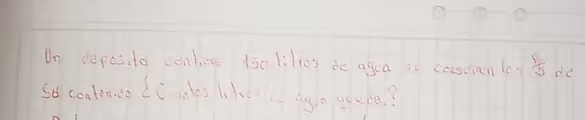 Un deposito contiene 150 litros de agua se consumen los 2/5 de
su contenido ¿Cuantos litros de agua queda?